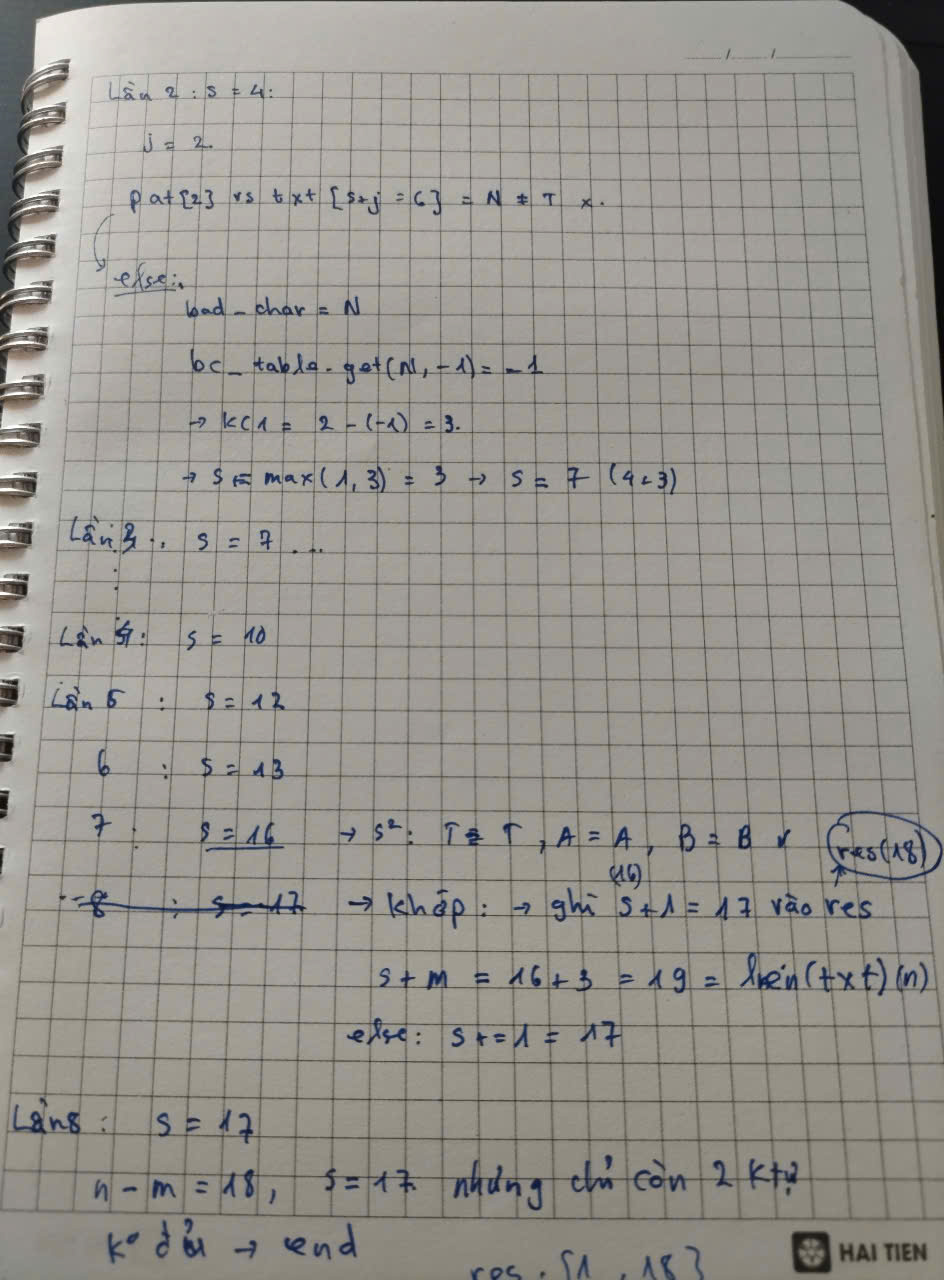 Lần 2 : s = 4:
j = 2.
pat[2] vs txt [s+j = 6] = N ≠ T x.
else:
bad_char = N
bc_table.get(N, -1) = -1
→ KC1 = 2 - (-1) = 3.
→ s += max(1, 3) = 3 → s = 7 (4+3)
Lần 3 : s = 7 ...
Lần 4 : s = 10
Lần 5 : s = 12
6 : s = 13
7 : s = 16 → s²: T = T , A = A , B = B v res(18)
(16)
8 : s = 17 → Khớp : → ghi s+1 = 17 vào res
s + m = 16 + 3 = 19 = len(txt)(n)
else: s += 1 = 17
Lần 8 : s = 17
n - m = 18, s = 17 nhưng chỉ còn 2 ktự
Ko đủ → end
res . [1 , 18]
HAI TIEN